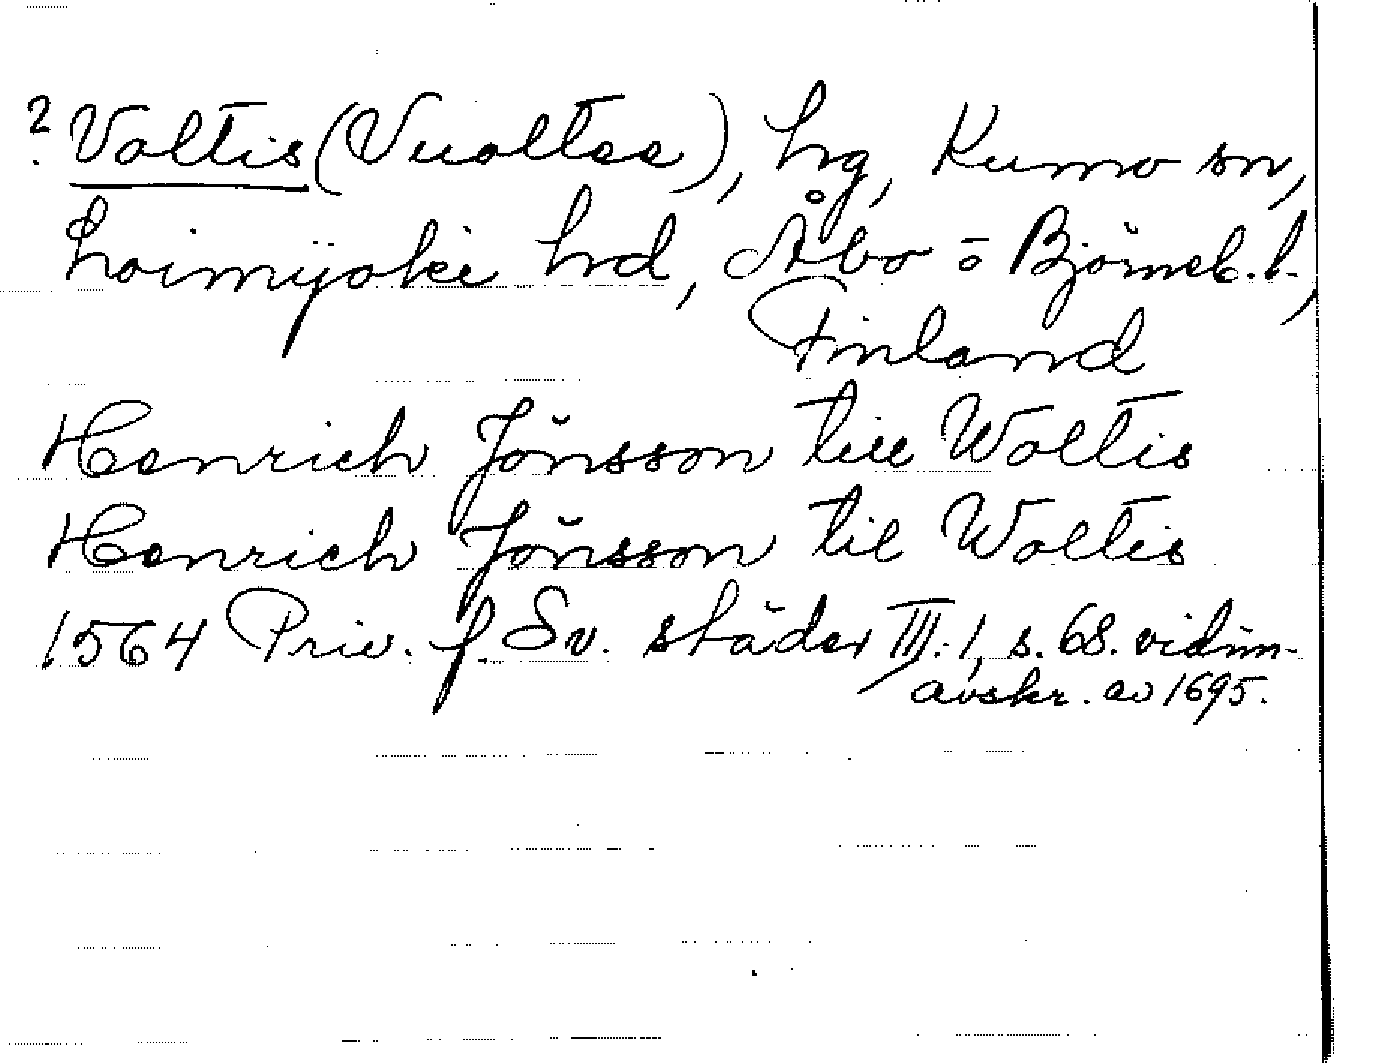 ? Voltis (Vuoltee), hg, Kumo sn,
Loimijoki hd, Åbo o Björneb. l.,
Finland
Henrich Jönsson till Woltis
Henrich Jönsson til Woltis
1564 Priv. f. Sv. städer III: 1, s. 68. vidim-
avskr. av 1695.